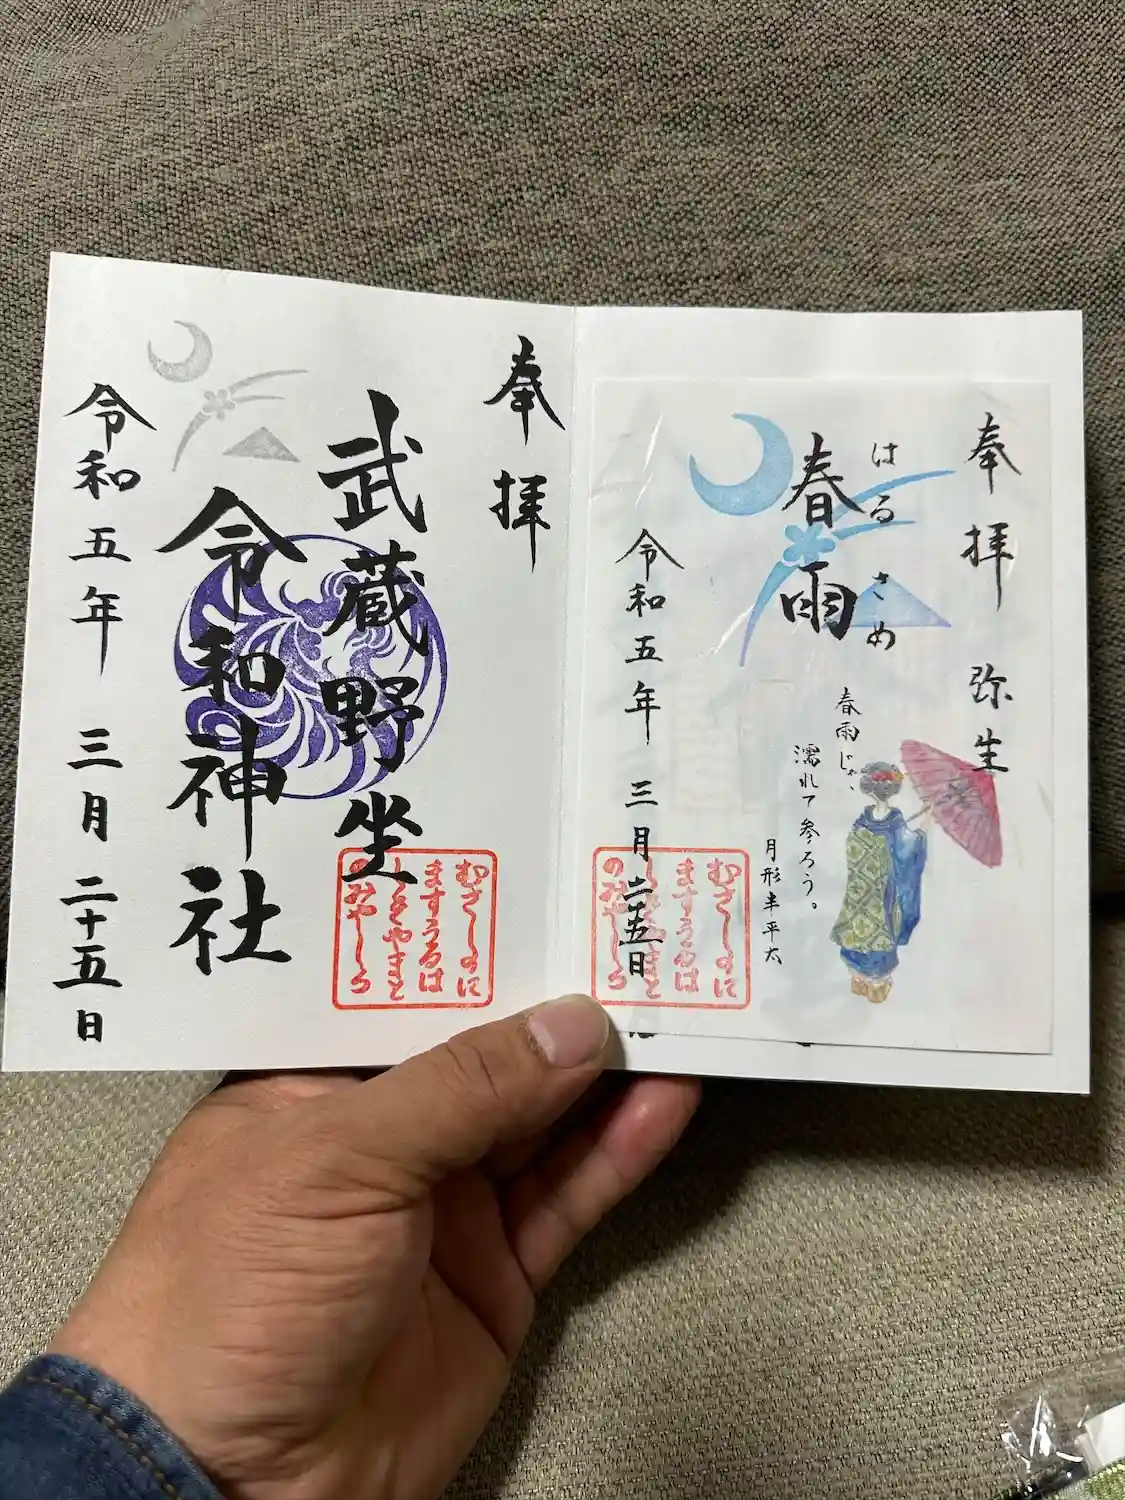 奉拝 弥生
はるさめ
春雨
春雨じゃ、
濡れて参ろう。
月形半平太
令和五年 三月 二十五日
むさしのに
ますうるは
しきやまと
のみやしろ
奉拝
武蔵野坐
令和神社
令和五年 三月 二十五日
むさしのに
ますうるは
しきやまと
のみやしろ